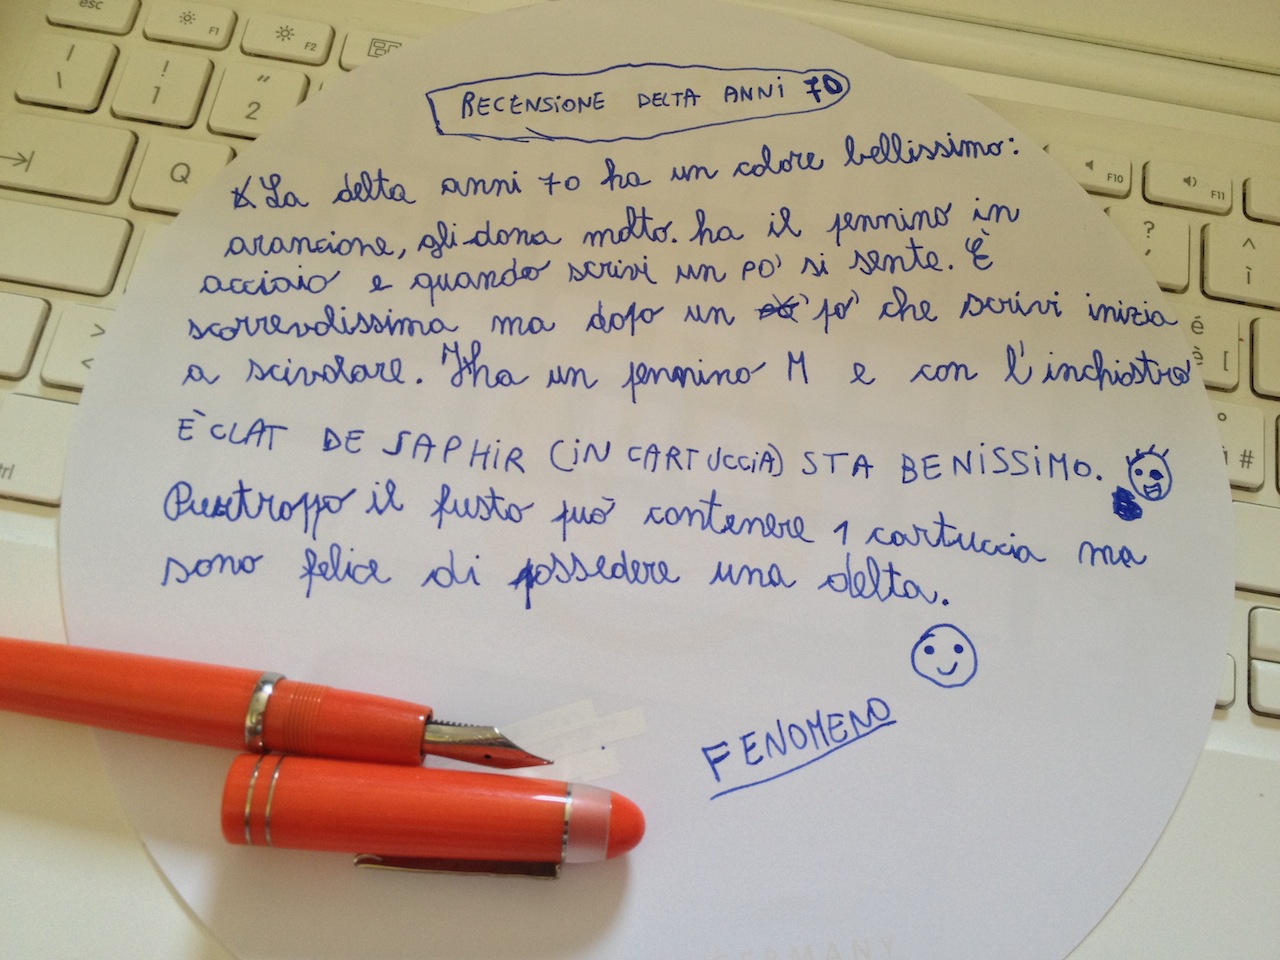 esc
F1
F2
! 1
" 2
Q
F10
F11
?
^ ì
é
è [
° #
trl
RECENSIONE DELTA ANNI 70
La delta anni 70 ha un colore bellissimo:
arancione, gli dona molto. ha il pennino in
acciaio e quando scrivi un po' si sente. È
scorrevolissima ma dopo un po' che scrivi inizia
a scivolare. ha un pennino M e con l'inchiostro
ÈCLAT DE SAPHIR (IN CARTUCCIA) STA BENISSIMO.
Purtroppo il fusto può contenere 1 cartuccia ma
sono felice di possedere una delta.
FENOMENO
GERMANY